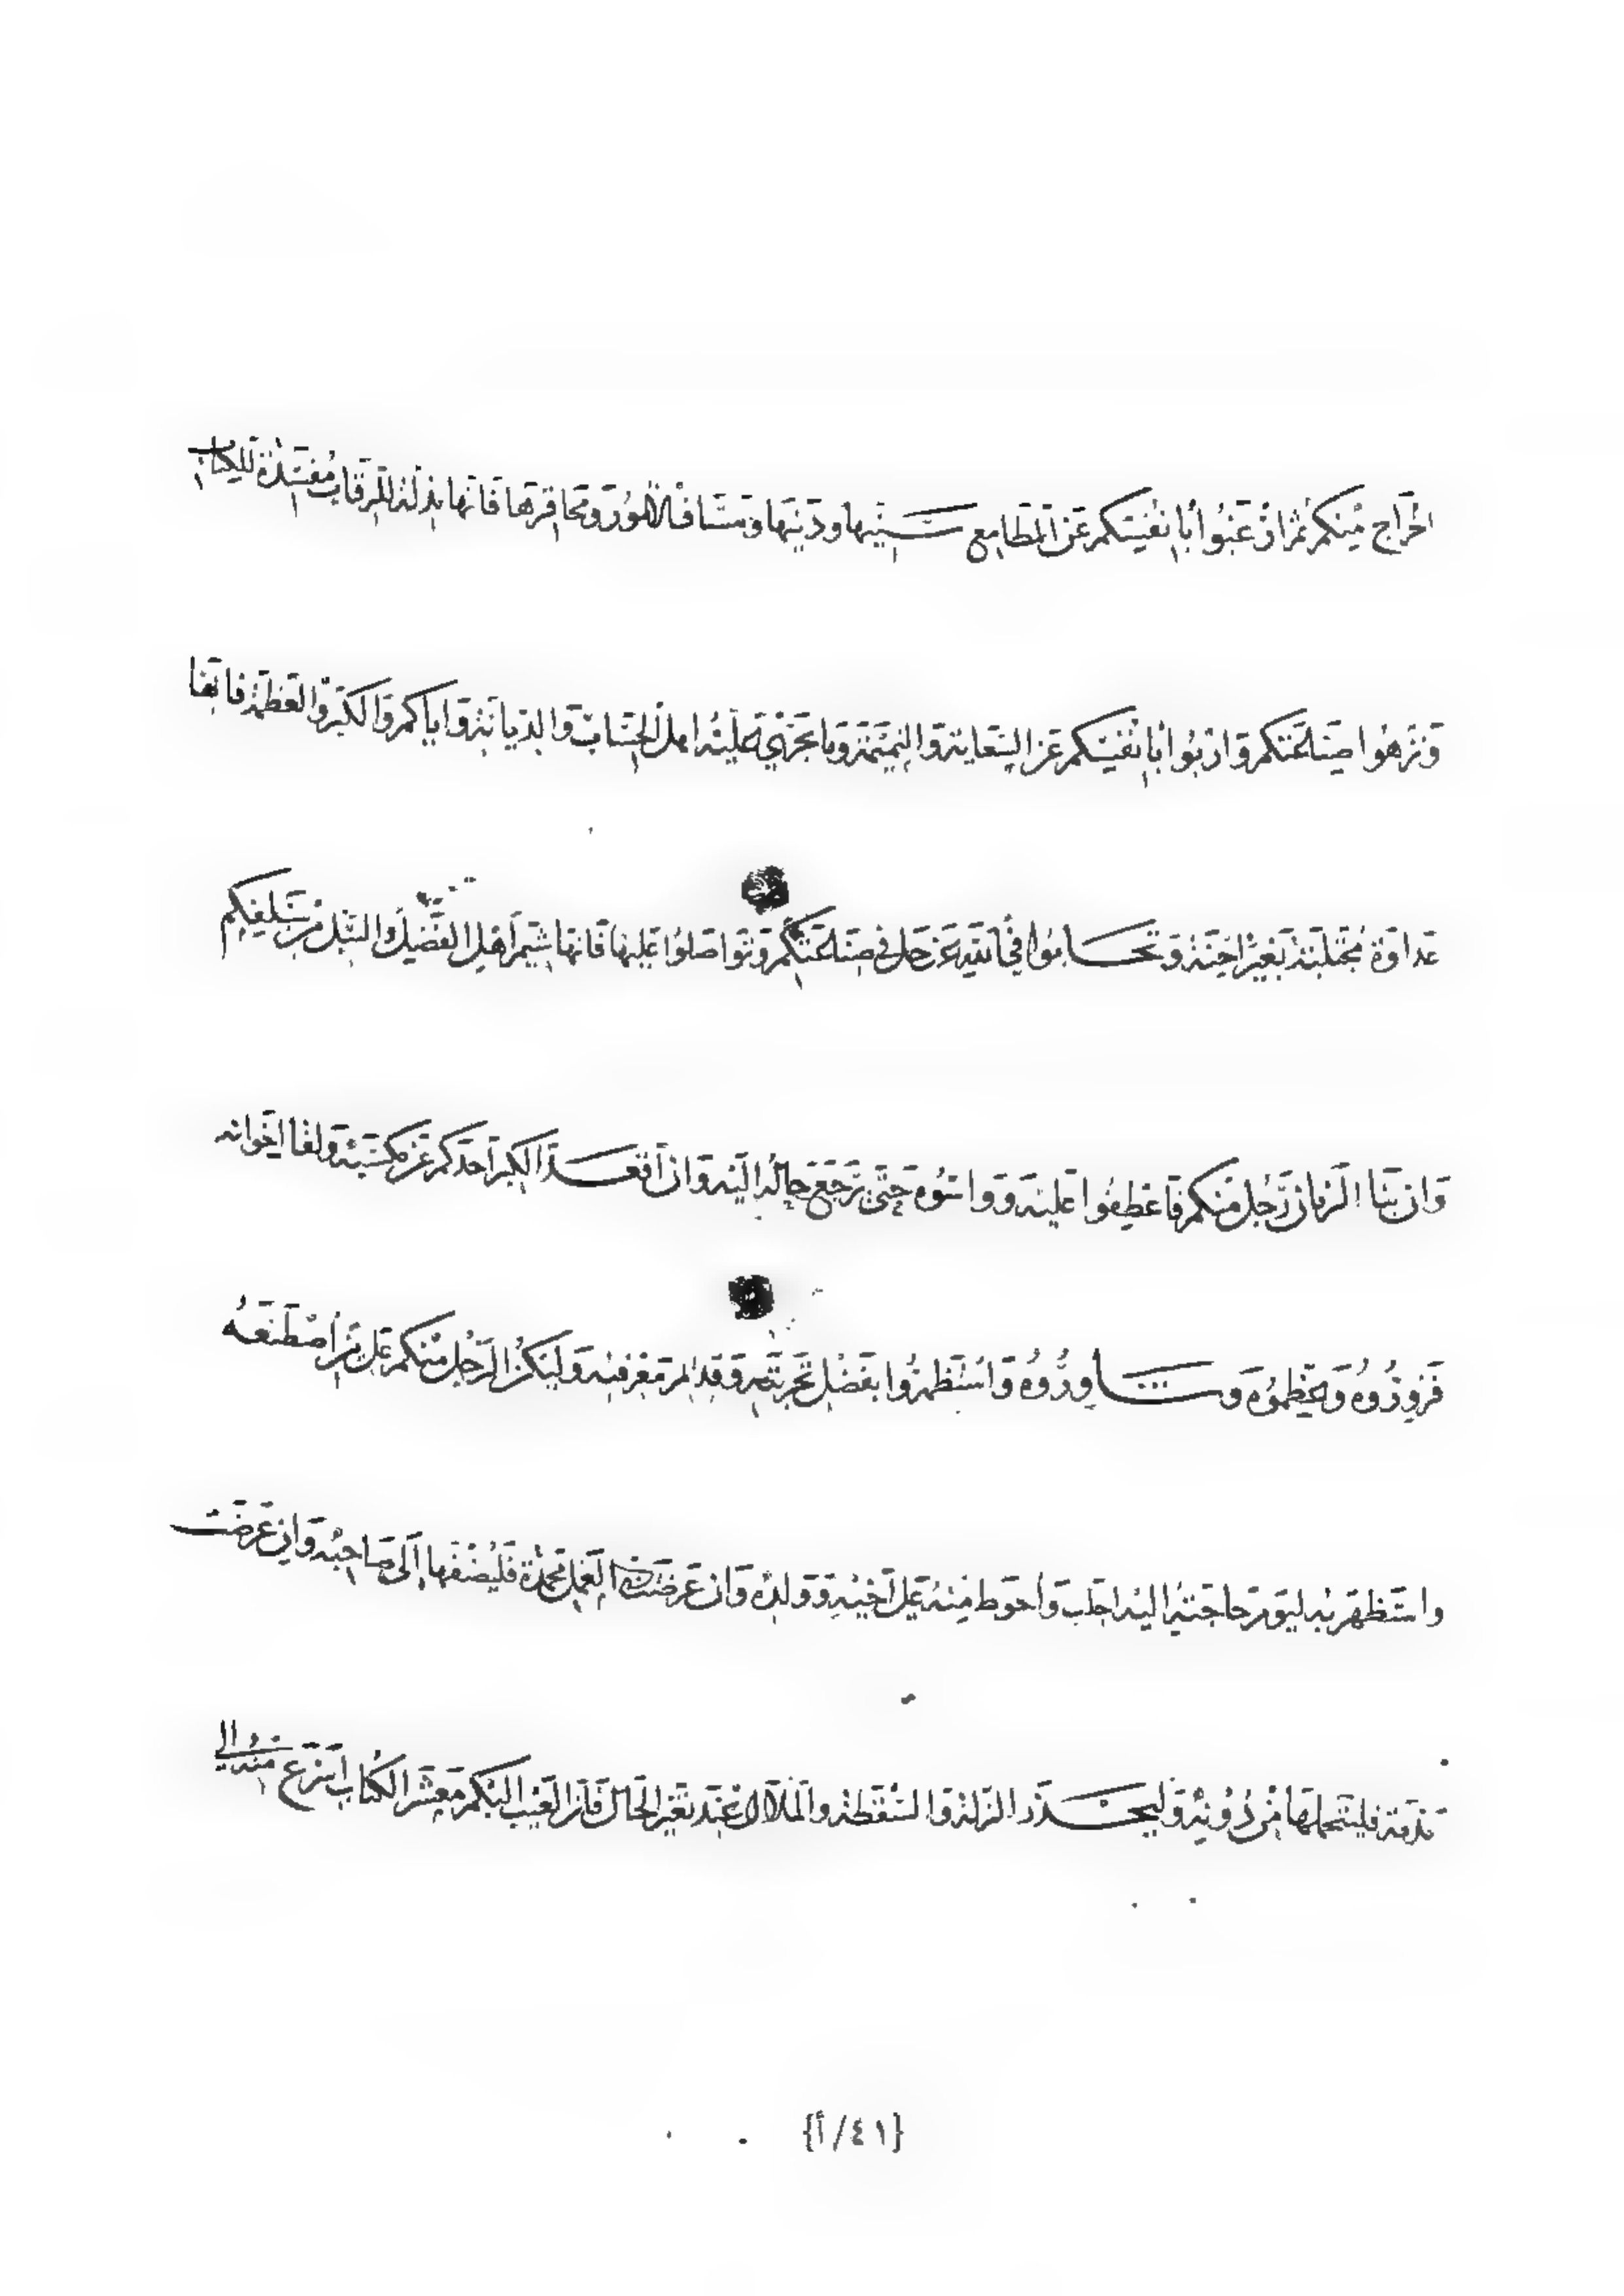 الخَرَاجِ مِنكُمْ ثُمَّ ارْغَبُوا بأنفسكم عَنِ المَطَامِعِ سَنِيّها وَدَنِيّها وَمَسَاف الأمُورِ وَمَحَاقِرِها فَانها مَذلةٌ لِلرِّقَابِ مُفْسِدَةٌ لِلكتاب
وَنَزّهُوا صِنَاعَتَكُمْ وَارْبَوُا بأنفسكم عَنِ السِّعَايَةِ وَالنَمِيمَةِ وَمَا يَجْري عَلَيْهِ اهل الحسَابِ وَالدِّيَانَةِ وَاياكم وَالكِبْرَ وَالعَظَمَةَ فَانها
عَدَاوَةٌ مُجْتَلَبَةٌ بغير احنَةٍ وَتَحَابّوا في الله عَزَّ وجَلَّ في صنَاعَتكُمْ وَتَوَاصَلُوا عَليها فَانها شِيَمُ أهل الفَضْلِ والنُّبْلِ مِنْ سَلَفِكُم
وَان نَبَا الزَمَانُ برَجُلٍ مِنكُمْ فَاعْطِفُوا عَلَيْهِ وَوَاسُوهُ حَتَّى تَرْجعَ حَالُهُ الَيْهِ وَان أقعَدَ الكِبَرُ أحَدَكُم عَنْ مَكسَبِهِ وَلقَا إخْوَانه
فَزُورُوهُ وَعَظِّمُوهُ وَشَاوِرُوهُ وَاسْتَظهِرُوا بِفَضْلِ تَجْرِبَتِهِ وَقِدَمِ مَعْرِفتِهِ وَليَكُنِ الرَجُلُ مِنْكُمْ عَلى مَنِ اصْطَنَعَهُ
وَاسْتَظهَرَ بِهِ ليَوْم حَاجَتِهِ اليْهِ احدبَ وَأحوَط مِنْهُ عَلى أخِيْهِ وَوَلدِهِ وَان عَرَضَتْ في العَمَلِ مَحْمِدَةٌ فَليُضِفْهَا إلَى صَاحِبِهِ وَان عَرَضَت
مَذَمّة فليَتَحَمَّلهَا مِنْ دُوْنِهِ وَليَحْذَرِ الزَلةَ وَالسَّقْطَةَ وَالمَلالَ عِنْدَ تَغَيُّرِ الحَالِ فَانَّ العَيْبَ اليْكُمْ مَعْشَرَ الكُتَّاب أسْرَعُ مِنْهُ إلى
{٤١/أ}